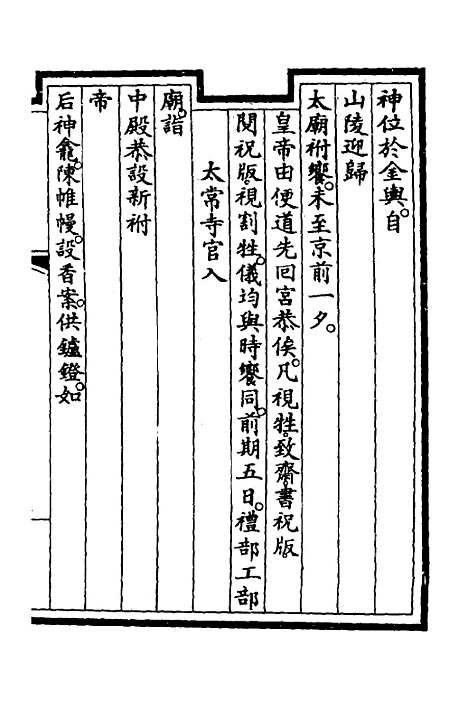 神位於金輿。自
山陵迎歸
太廟祔饗。未至京前一夕。
皇帝由便道先回宮恭俟。凡視牲。致齋。書祝版。
閱祝版。視割牲。儀均與時饗同。前期五日。禮部工部
太常寺官入
廟。詣
中殿恭設新祔
帝
后神龕。陳帷幔。設香案。供鑪鐙。如